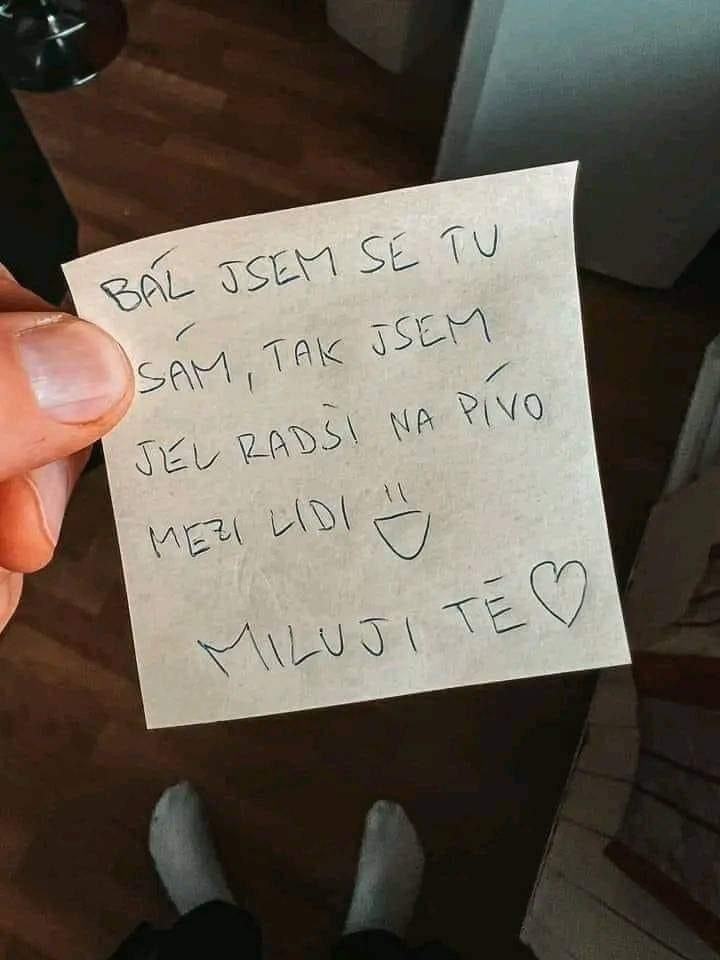 BÁL JSEM SE TU
SÁM, TAK JSEM
JEL RADŠI NA PÍVO
MEZI LIDI
MILUJI TĚ